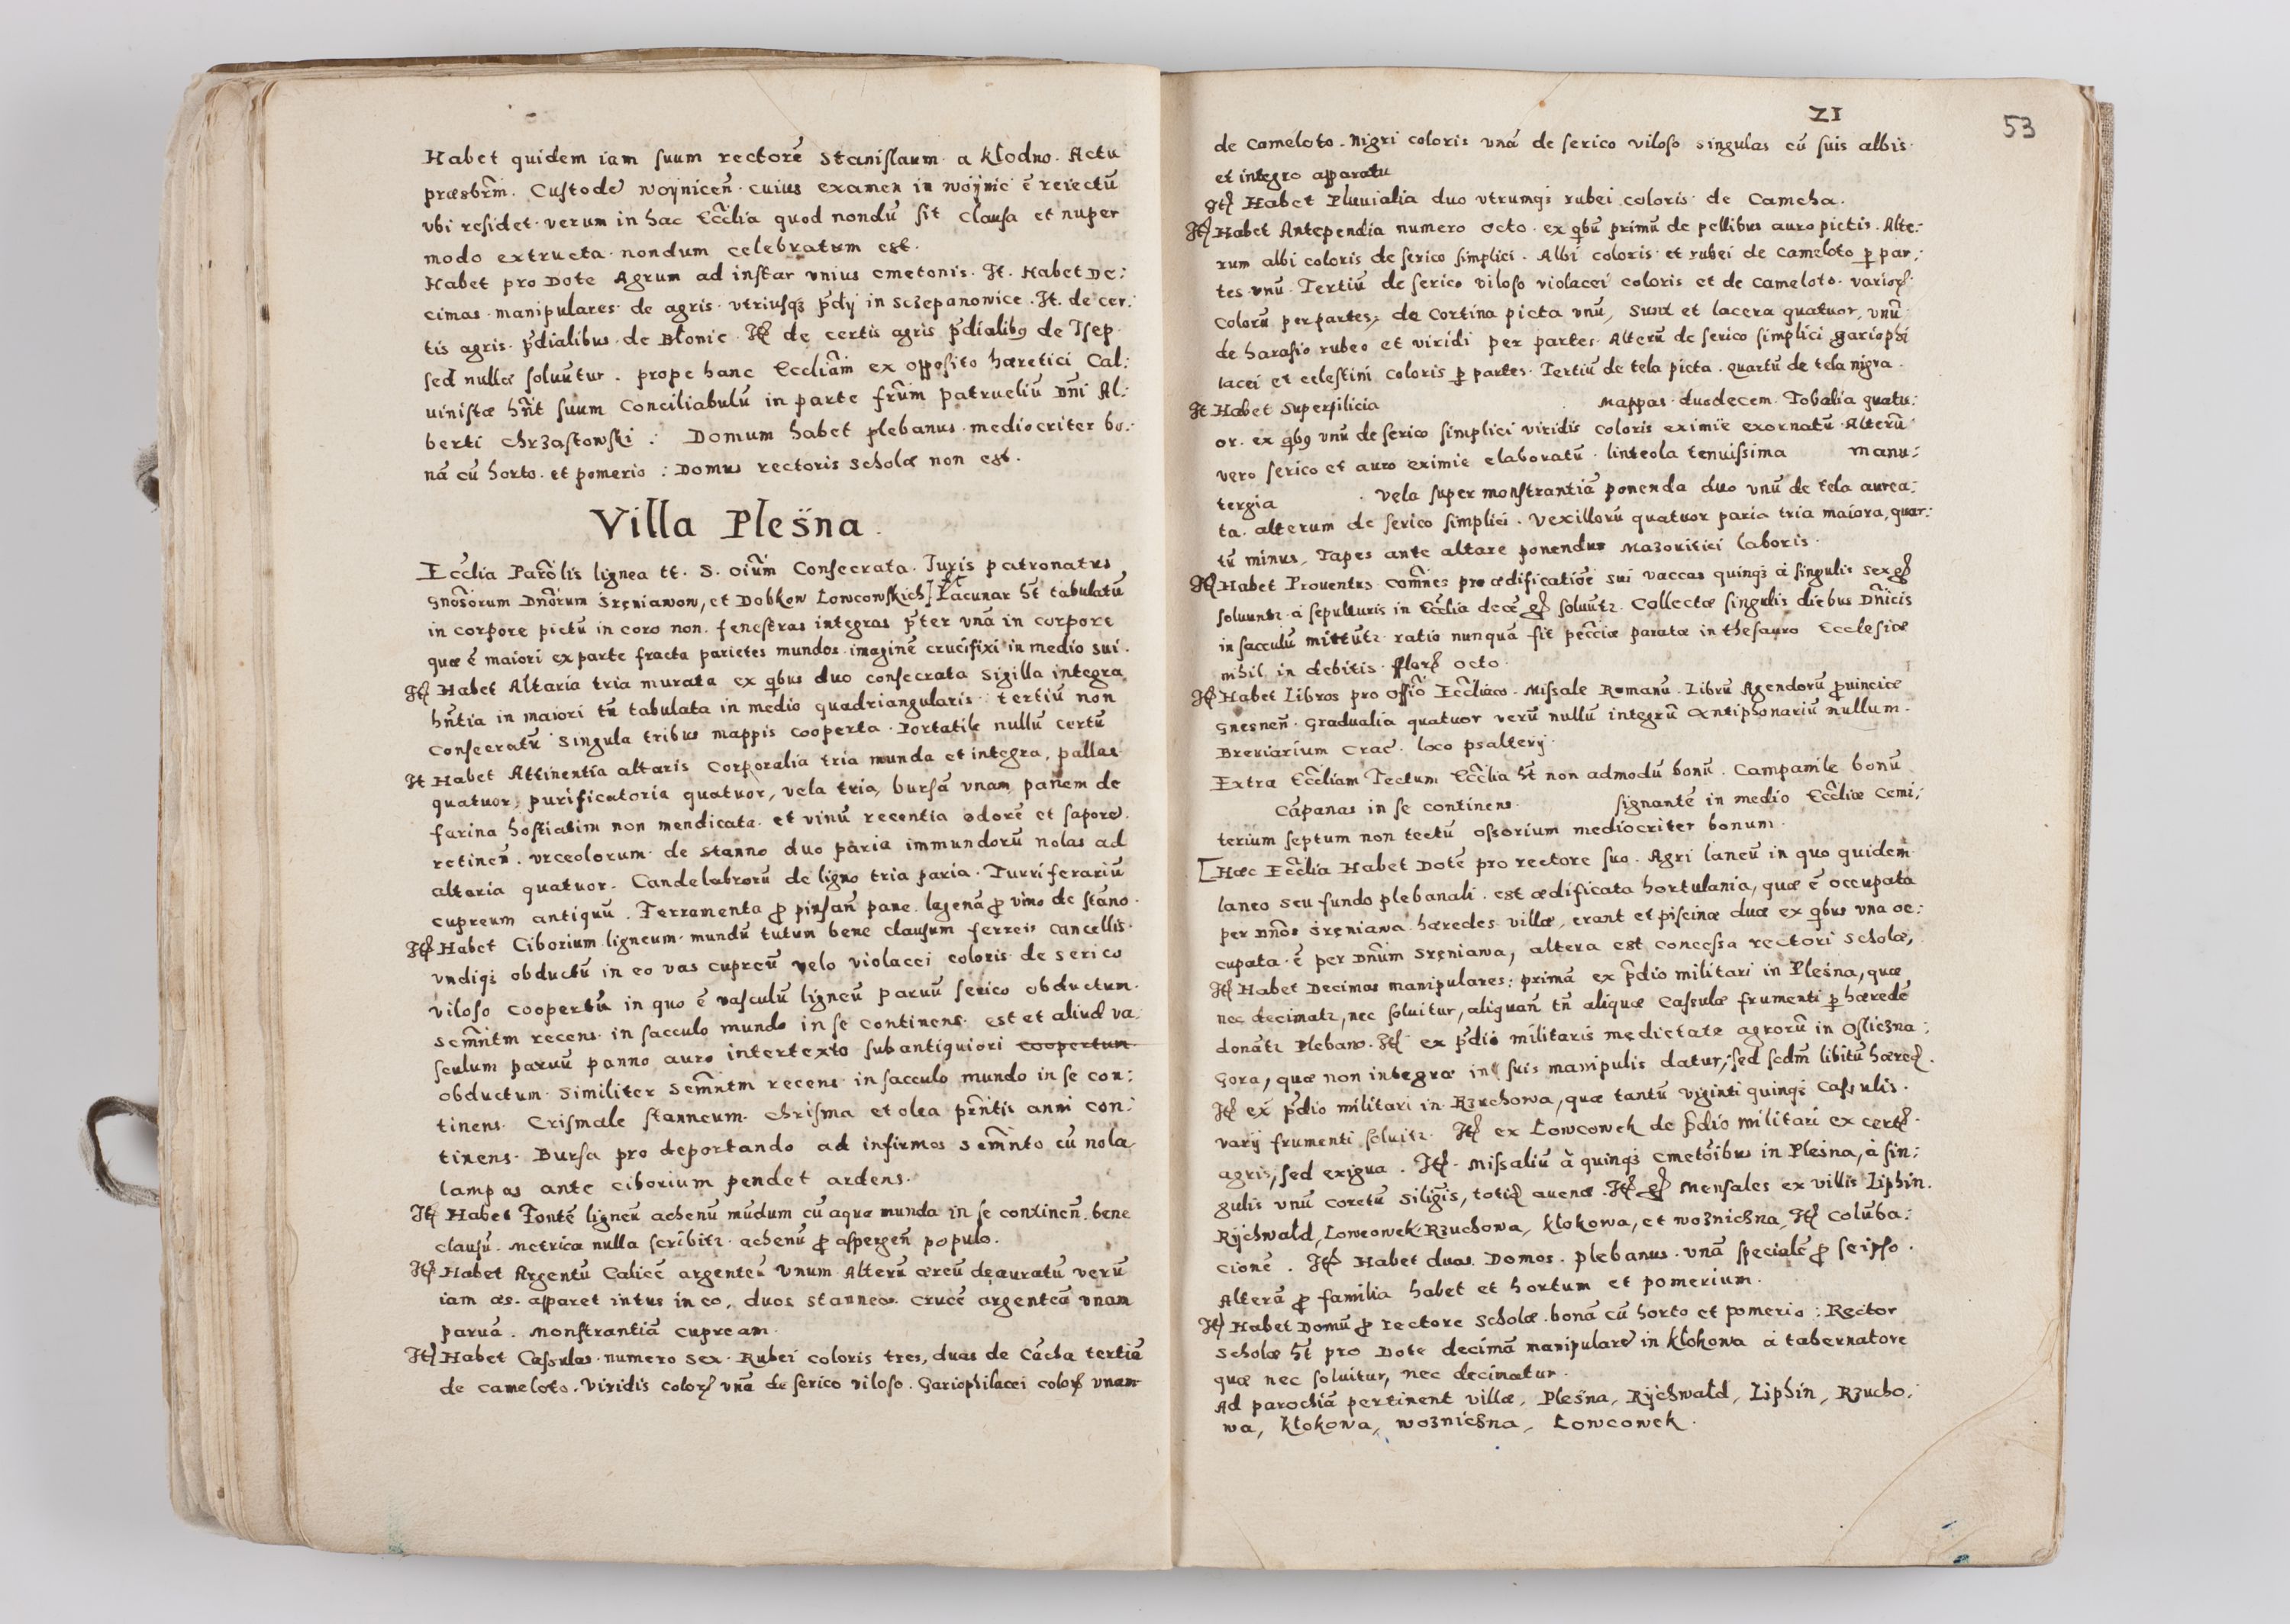 Habet quidem iam suum rectorē Stanislaum a Kłodno. Actu
præsbrm̄. Custodē Woÿniceñ. cuius examen in Woÿnic ē reiectū
vbi residet. verum in hac Eccľia quod nondū sit clausa et nuper
modo extructa. nondum celebratum est.
Habet pro Dote Agrum ad instar vnius cmetonis. It. Habet De:
cimas manipulares de agris vtriusqʒ p̃dij in Sczepanowice. It. de cer:
tis agris p̃dialibus de Błonie. Itē de certis agris p̃dialibꝯ de Isep
sed nullæ soluūtur. prope hanc Eccliam̄ ex opposito hæretici Cal:
uinistæ hñt suum Conciliabulū in parte fr̄um patrueliū Dñi Al:
berti Chrząstowski: Domum habet plebanus mediocriter bo:
nā cū horto et pomerio: Domus rectoris scholæ non est.
Villa Plesna.
Eccľia Parōlis lignea tt. S. Oiūm Consecrata. Juris patronatus
Gnōsorum Dnōrum Sreniawow, et Dobkow Łowcowskich] Lacunar hēt tabulatū
in corpore pictū in coro non. fenestras integras p̃ter vnā in corpore
quæ ē maiori ex parte fracta parietes mundos imaginē crucifixi in medio sui.
Itē Habet Altaria tria murata ex qībus duo consecrata Sigilla integra
hñtia in maiori tñ tabulata in medio quadriangularis tertiū non
consecratū Singula tribus mappis cooperta. Portatile nullū certū
It Habet Attinentia altaris Corporalia tria munda et integra, pallas
quatuor, purificatoria quatuor, vela tria, bursā vnam, panem de
farina hostiatim non mendicata et vinū recentia odorē et saporē
retineñ. vrceolorum de stanno duo paria immundorū nolas ad
altaria quatuor. Candelabrorū de ligno tria paria. Turriferariū
cupreum antiquū. Ferramenta ꝓ pinsañ pane. lagenā ꝓ vino de stāno.
Itē Habet Ciborium ligneum mundū tutum bene clausum ferreis cancellis
vndiqʒ obductū in eo vas cupreū velo violacei coloris de serico
viloso coopertū in quo ē vasculū ligneū paruū serico obductum.
Semñtm recens in sacculo mundo in se continens est et aliud va:
sculum paruū panno auro intertexto subantiquiori coopertum
obductum Similiter Semñtm recens in sacculo mundo in se con:
tinens. Crismale stanneum. Chrisma et olea prñtis anni con:
tinens. Bursa pro deportando ad infirmos Semñnto cū nola
lampas ante ciborium pendet ardens.
Itē Habet Fontē ligneū achenū mūdum cū aqua munda in se contineñ. bene
clausū. Metrica nulla scribitr. achenū ꝓ aspergeñ populo.
Itē Habet Argentū Calicē argenteū vnum Alterū æreū deauratū verū
iam æs apparet intus in eo, duos stanneos. Crucē argenteā vnam
paruā. Monstrantiā cupream.
Itē Habet Casulas numero sex. Rubei coloris tres, duas de Cācha tertiā
de cameloto. Viridis colorꝭ vnā de serico viloso. Gariophilacei colorꝭ vnam
ZI
53
de Cameloto. Nigri coloris vnā de serico viloso singulas cū suis albis
et integro apparatu
Itē Habet Pluuialia duo vtrumqʒ rubei coloris de Camcha.
Itē Habet Antependia numero octo. ex qībū primū de pellibus auro pictis. Alte:
rum albi coloris de serico simplici. Albi coloris et rubei de Cameloto ꝑ par:
tes vnū. Tertiū de serico viloso violacei coloris et de Cameloto. variorꝭ
Colorū per partes, de Cortina picta vnū, Sunt et lacera quatuor, vnū
de harasio rubeo et viridi per partes. Alterū de serico simplici gariophi
lacei et celestini coloris ꝑ partes. Tertiū de tela picta. quartū de tela nigra.
It Habet Superpilicia Mappas duodecem. Tobalia quatu:
or. ex qībꝯ vnū de serico simplici viridis coloris eximie exornatū. Alterū
vero serico et auro eximie elaboratū. linteola tenuissima Manu:
tergia. Vela super monstrantiā ponenda duo vnū de tela aurea:
ta. alterum de serico simplici. Vexillorū quatuor paria tria maiora, quar:
tū minus, Tapes ante altare ponendus Mazouitici laboris.
Itē Habet Prouentus comñes pro ædificatiōe sui vaccas quinqʒ à singulis sex gꝭ
soluuntr. a sepulturis in Eccľia decē gꝭ soluūtr. Collectæ singulis diebus Dñicis
in sacculū mittūtr. ratio nunquā fit pecc̄iæ paratæ in thesauro Ecclesiæ
nihil in debitis florꝭ octo.
Itē Habet Libros pro Offiō Eccľiaco. Missale Romanū. Librū Agendorū ꝓuinciæ
Gnesneñ. Gradualia quatuor verū nullū integrū Antiphonariū nullum.
Breuiarium Crac̄. loco psalterij.
Extra Eccľiam Tectum Eccľia hēt non admodū bonū. Campanile bonū
cāpanas in se continens. signantē in medio Eccľiæ Cemi:
terium septum non tectū ossorium mediocriter bonum.
[Hæc Eccľia Habet Dotē pro rectore suo. Agri laneū in quo quidem
laneo seu fundo plebanali est ædificata hortulania, quæ ē occupata
per Dnōs Sreniawa hæredes villæ, erant et piscinæ duæ ex qībus vna oc:
cupata ē per Dnūm Sreniawa, altera est concessa rectori scholæ,
Itē Habet Decimas manipulares: primā ex p̃dio militari in Plesna, quæ
nec decimatr, nec soluitur, aliquañ tñ aliquæ Cassulæ frumenti ꝑ hæredē
donātr Plebano. Itē ex p̃dio militaris medietate agrorū in Osliczna:
Gora, quæ non integræ in suis manipulis datur, sed secdm̄ libitū hæredꝭ.
Itē ex p̃dio militari in Rzuchowa, quæ tantū viginti quinqʒ Cassulis
varij frumenti soluitr. Itē ex Łowcowek de p̃dio militari ex certꝭ
agris, sed exigua. Itē. Missaliū à quinqʒ cmetōibus in Plesna, à sin:
gulis vnū coretū siliginis, totiꝭ auenæ. Itē gꝭ Mensales ex villis Liphin.
Rÿchwałd, Łowcowek, Rzuchowa, Kłokowa, et Wozniczna, Itē colūba:
cionē. Itē Habet duas Domos. plebanus vnā specialē ꝓ seipso.
Alterā ꝓ familia habet et hortum et pomerium.
Itē Habet Domū ꝓ rectore scholæ. bonā cū horto et pomerio: Rector
scholæ hēt pro Dote decimā manipularē in Kłokowa à tabernatore
quæ nec soluitur, nec decimatur.
Ad parochiā pertinent villæ, Plesna, Rÿchwałd, Liphin, Rzucho:
wa, Kłokowa, Wozniczna, Łowcowek.